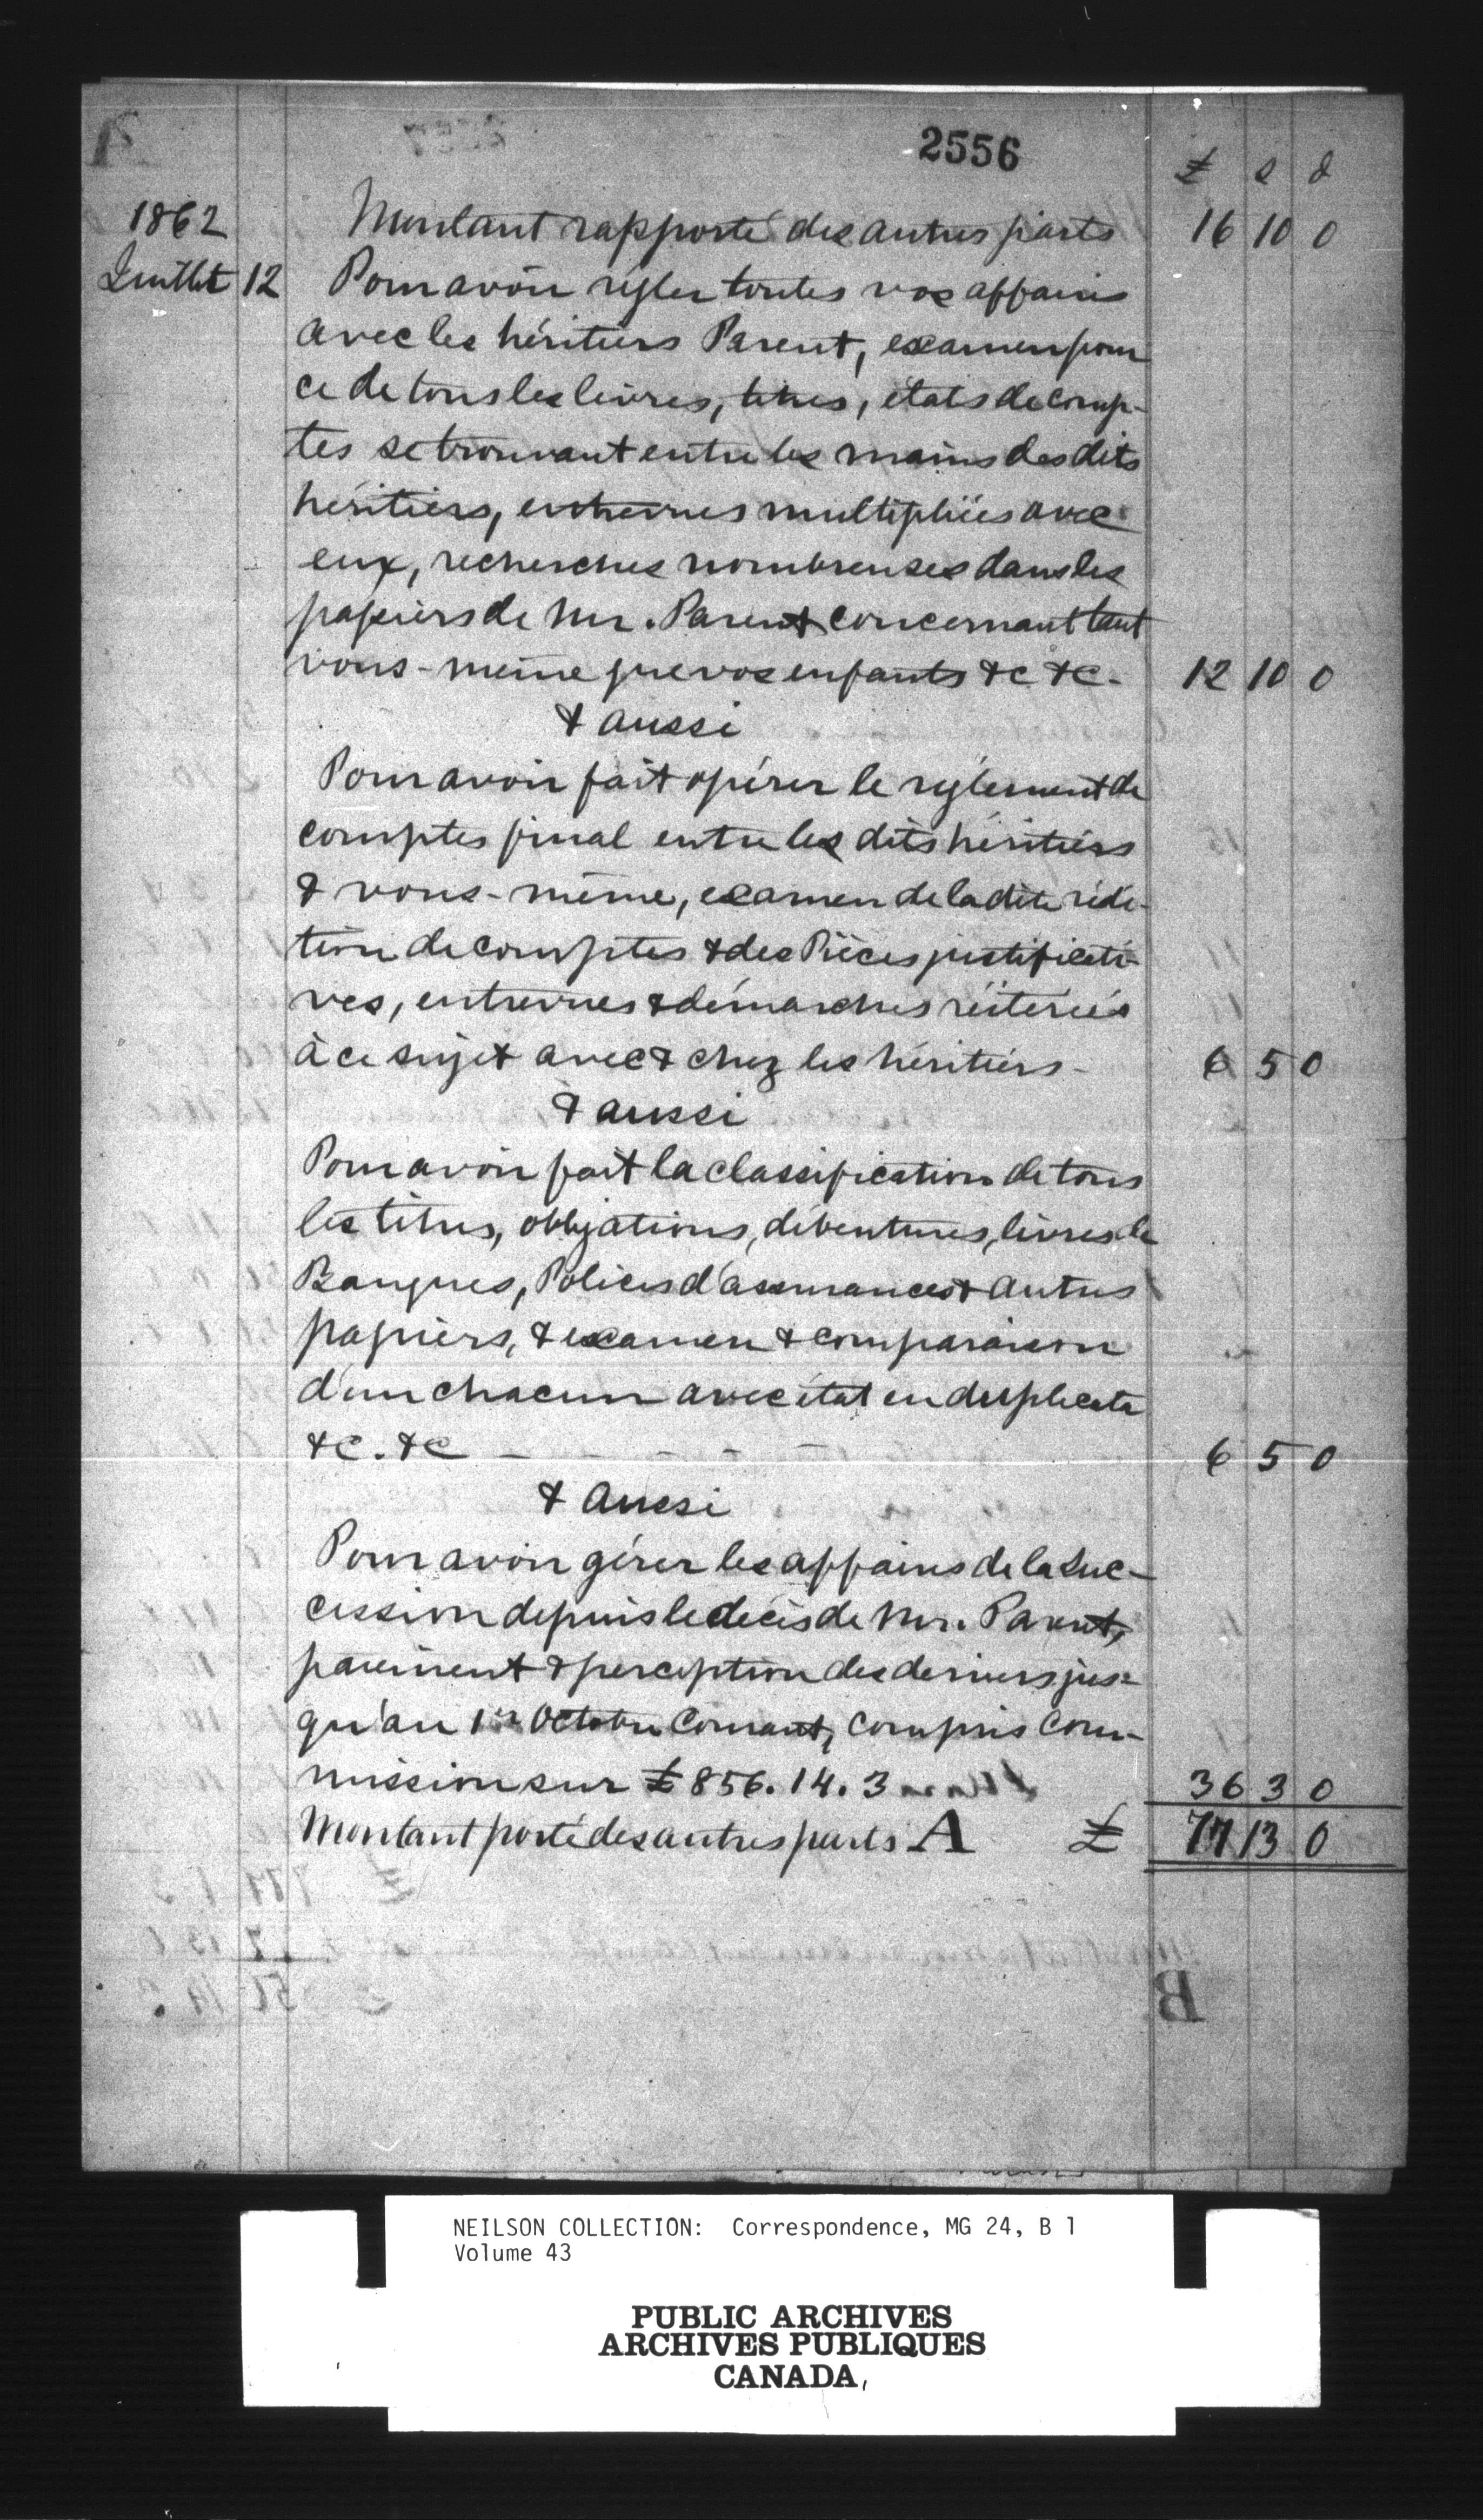 2556
£ s d
1862 Montant rapporté des autres parts 16 10 0
Juillet 12 Pour avoir régler toutes vos affaires
avec les héritiers Parent, examen pour
ce de tous les livres, titres, états de comp-
tes se trouvant entre les mains des dits
héritiers, entrevues multipliées avec
eux, recherches nombreuses dans les
papiers de Mr. Parent concernant tant
vous-même que vos enfants &c &c. 12 10 0
& aussi
Pour avoir fait opérer le règlement de
comptes final entre les dits héritiers
& vous-même, examen de la dite rédi-
tion de comptes & des Pièces justificati-
ves, entrevues & démarches réiterées
à ce sujet avec & chez les héritiers - 6 5 0
& aussi
Pour avoir fait la classification de tous
les titres, obligations, débentures, livres de
Banques, Polices d'assurances & autres
papiers, & examen & comparaison
d'un chacun avec état en duplicata
&c. &c - 6 5 0
& aussi
Pour avoir gérer les affaires de la Suc-
cession depuis le décès de Mr. Parent,
paiement & perception des deniers jus-
qu'au 1er Octobre Courant, compris Com-
mission sur £856.14.3 36 3 0
Montant porté des autres parts A £ 77 13 0
NEILSON COLLECTION: Correspondence, MG 24, B 1
Volume 43
PUBLIC ARCHIVES
ARCHIVES PUBLIQUES
CANADA